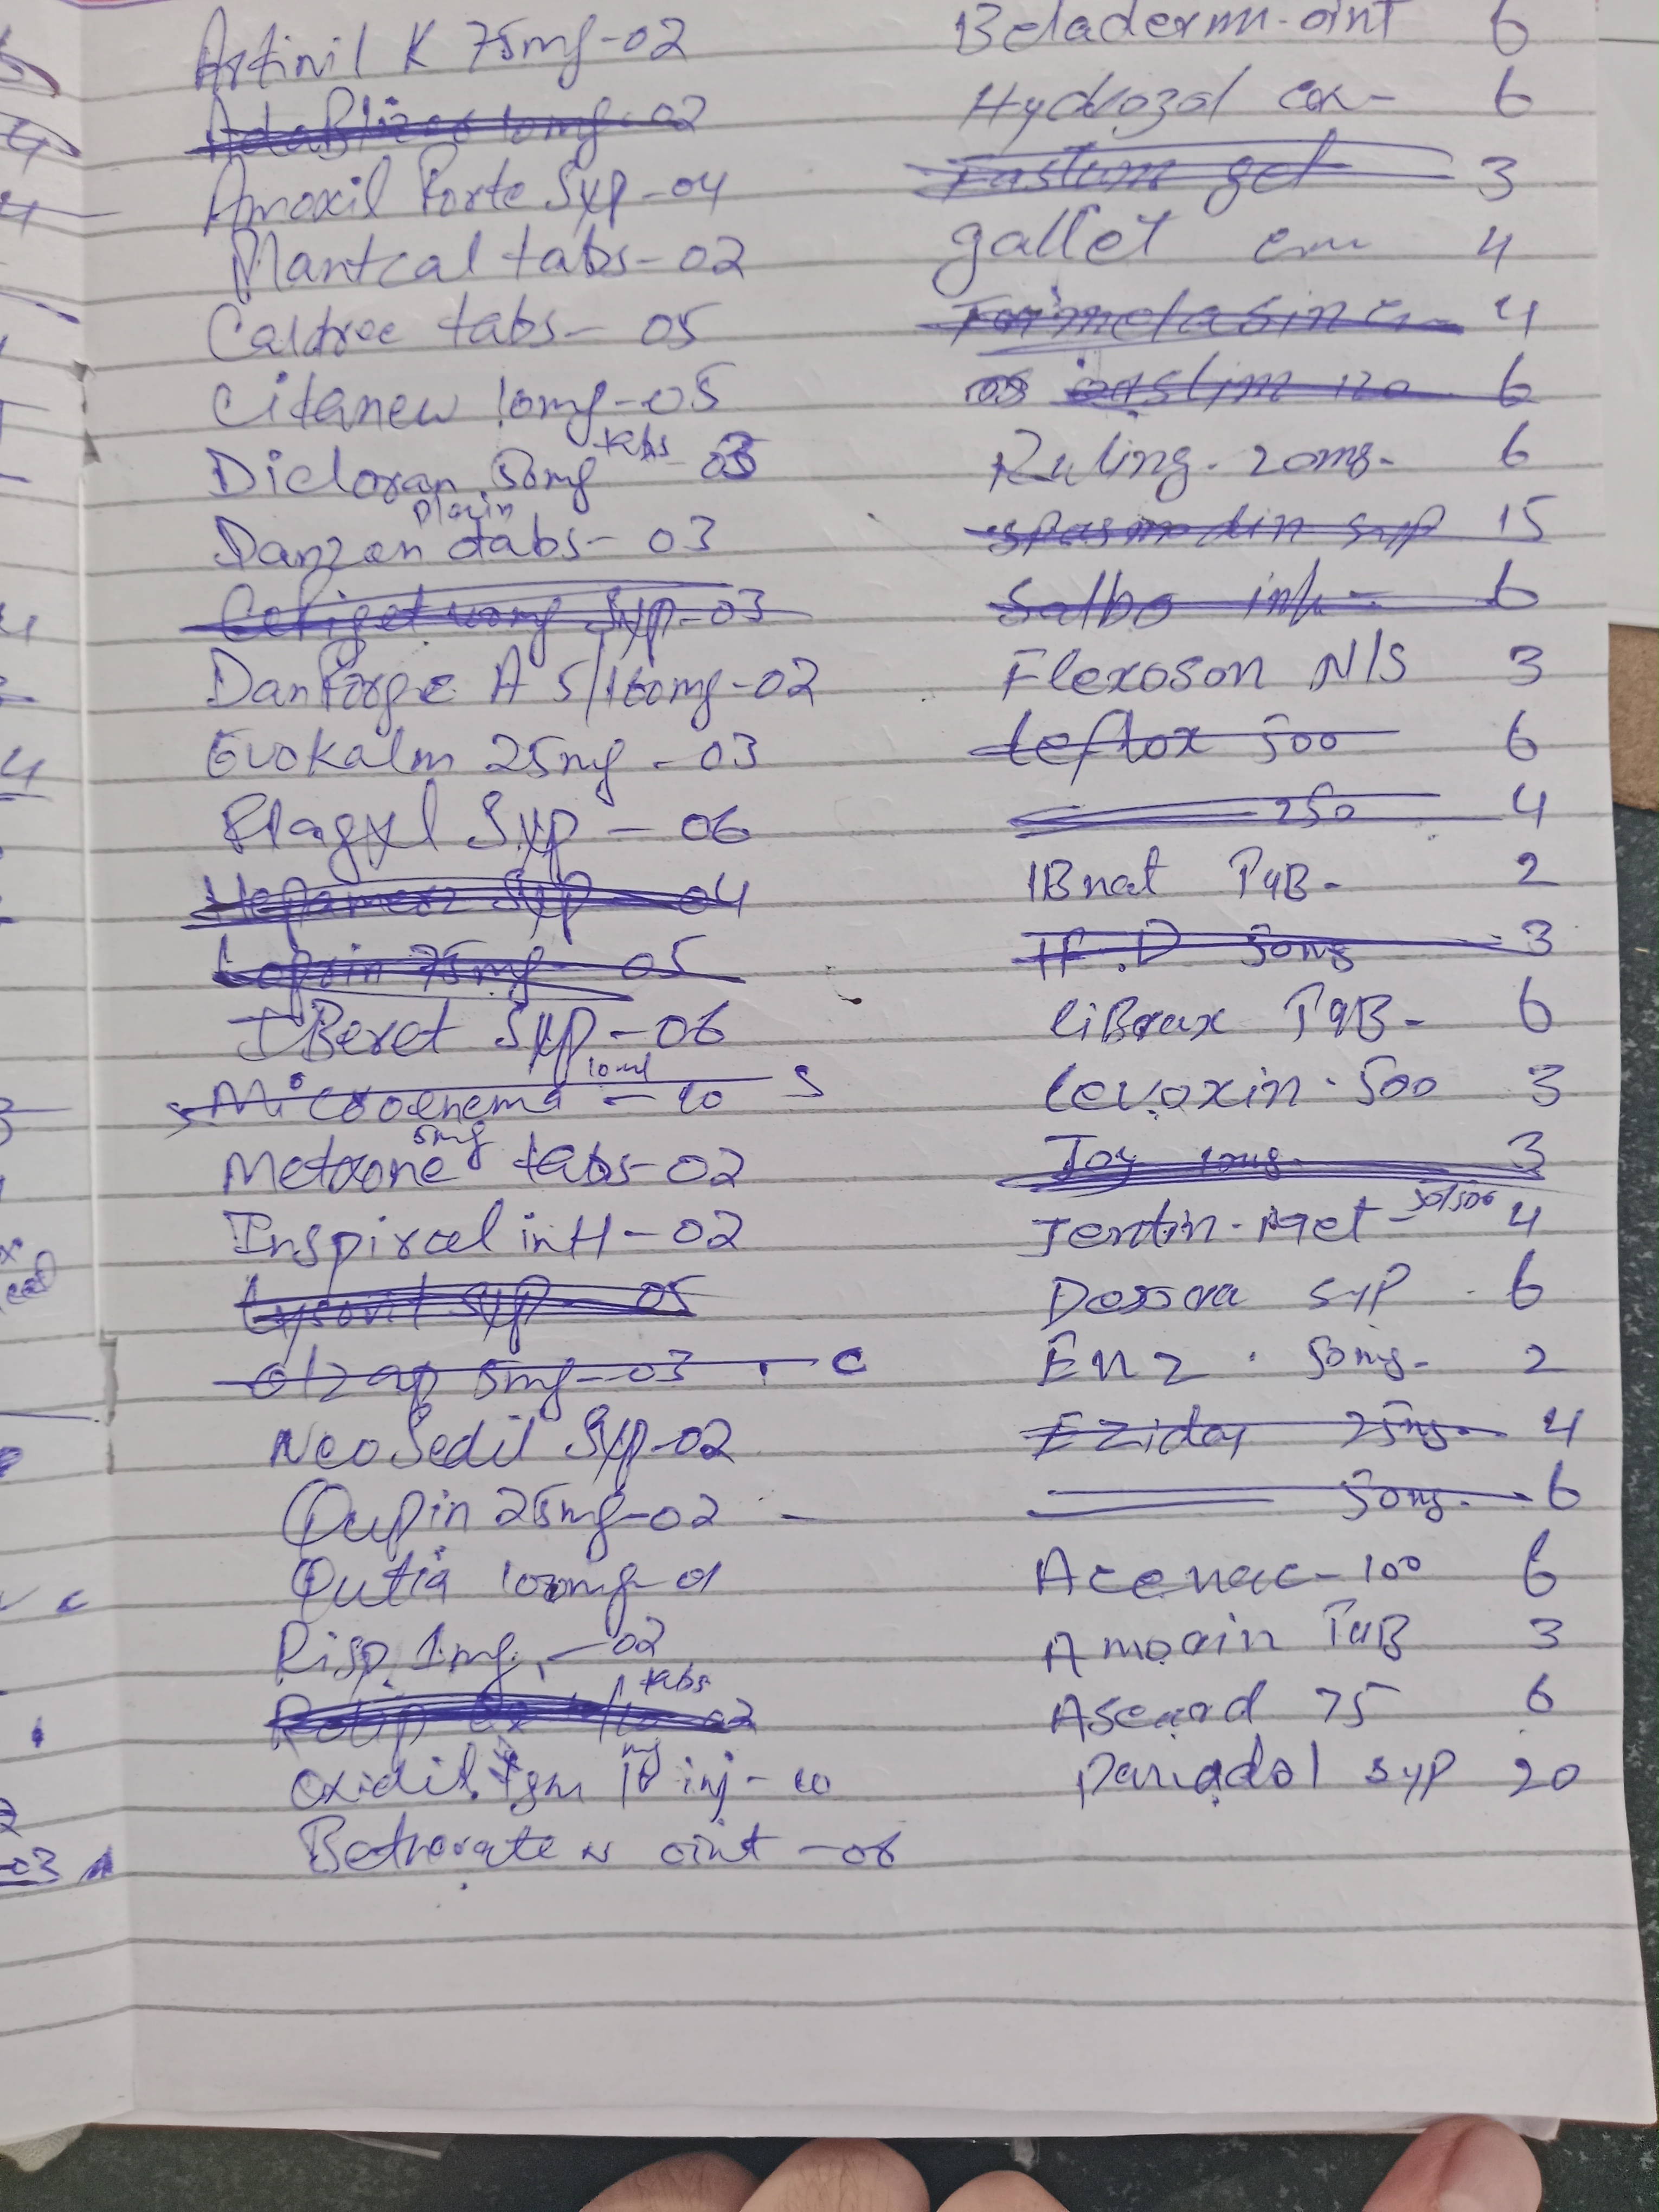 Artinil K 75mg-02
Amoxil Forte Syp-04
Mantcal tabs-02
Caldree tabs-05
Citanew 10mg-05
Dicloran 50mg tabs-03
Danzen plain tabs-03
Cefiget Syp-03
Danforge A 5/160mg-02
Evokalm 25mg-03
Flagyl Syp-06
Hepamerz Syp-04
Loprin 75mg-05
IBeret Syp-06
Microenema 10ml-10 S
Metxone 5mg tabs-02
Inspirol inH-02
Lysovit syp-05
olzap 5mg-03 . C
NeoSedil Syp-02
Qupin 25mg-02 -
Qutia 100mg-01
Risp 1mg-02
tabs 02
Oxidil 1gm inj-10
Bethovate N oint-06
Beladerm-oint 6
Hydrozol 6
Fastum gel 3
gallet 4
4
6
Ruling. 20mg- 6
Spasmodin syp 15
Salbo inh- 6
Flexoson N/S 3
Leflox 500 6
250 4
IBnat TAB- 2
50mg 3
LiBrax TAB- 6
Levoxin. 500 3
Joy 10mg. 3
Jentin-Met-50/500 4
Dossora syp 6
ENZ . 50mg- 2
EZiday 25mg. 4
50mg. 6
Acenac-100 6
TAB 3
Ascard 75 6
Panadol syp 20